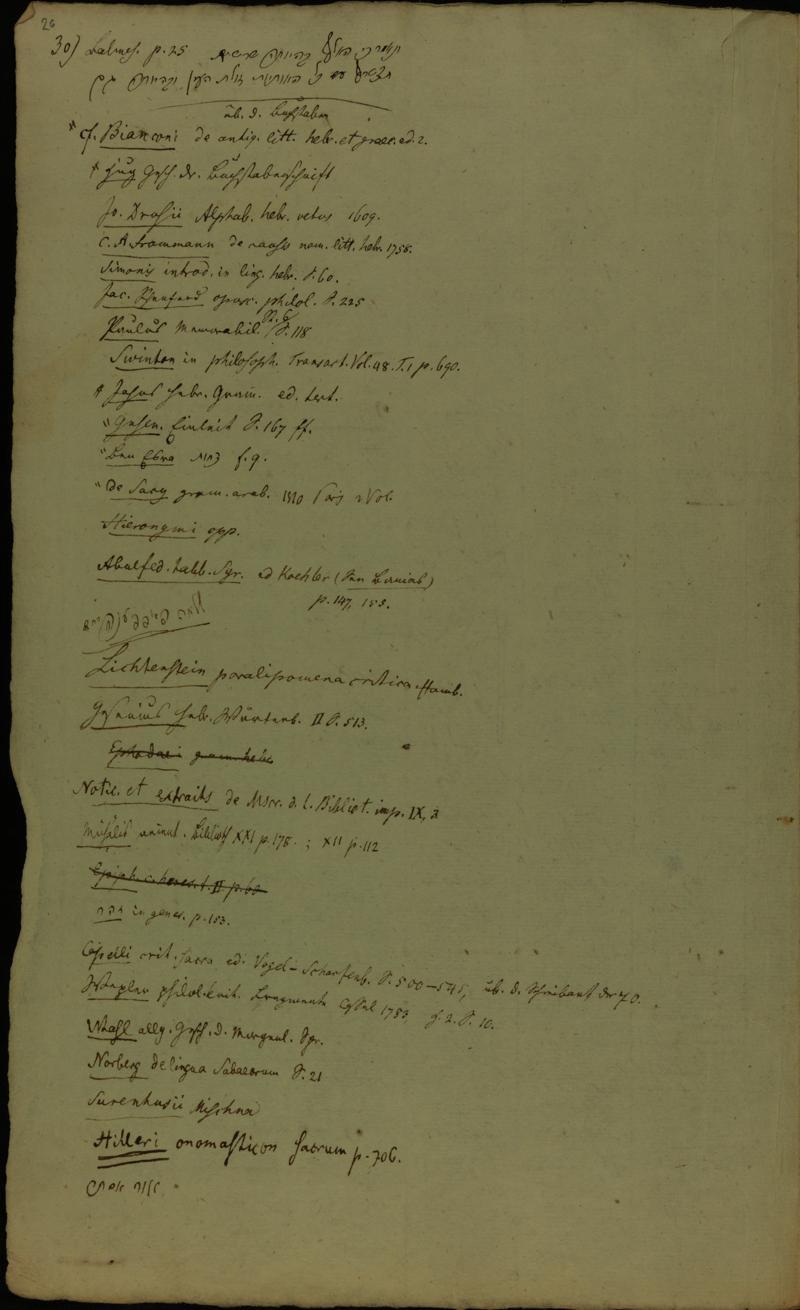 26
30) Balmes. p. 25
üb. d. Buchstaben
* cf. Bianconi de antiq. litt. hebr. et graec. ed. 2.
† Hug Gesch. dr. Buchstabenschrift
Jo. Drusii Alphab. hebr. vetus 1609.
C. A Frommann de causis nom. litt. hebr. 1758.
Simonis introd. in ling. hebr. S. 60.
Jac. Rhenferd opusc. philol. S. 225
Paulus Memorabil. St. 6 / S. 118
Swinton in philosoph. Transact. Vol. 48. T. 1 p. 690.
† Jahns hebr. Gram. ed. tert.
" Gesen. Einleit S. 167 ff.
" Ben Esra f. 9.
" De Sacy gram. arab. 1810 Paris 2 Vol.
Hieronymi opp.
Abulfed. tabb. Syr. ed Koehler (
p. 147, 155.
Lichtenstein paralipomena critica. Hamb.
Gesenius hebr. Wörterb. II S. 513.
Ephodaei gram. hebr
Notic. et extraits de Mscr. d. l. Bibliot. imp. IX, 2
Michaelis orient. Biblioth XXI p. 178. ; XII p. 112
Epiph. c. haeres. t. II p. 62
in genes. p. 153.
Capelli crit. sacra ed. Vogel-Scharfenb. S. 500–545, üb. d. Schreibart der 70.
philol. krit. Fragmente 1783 H. 2. S. 10.
Wahl allg. Gesch. d. Morgenl. Spr.
Norberg de lingua Sabaeorum S. 21
Surenhusii Mischna
Hilleri onomasticon sacrum p. 706.